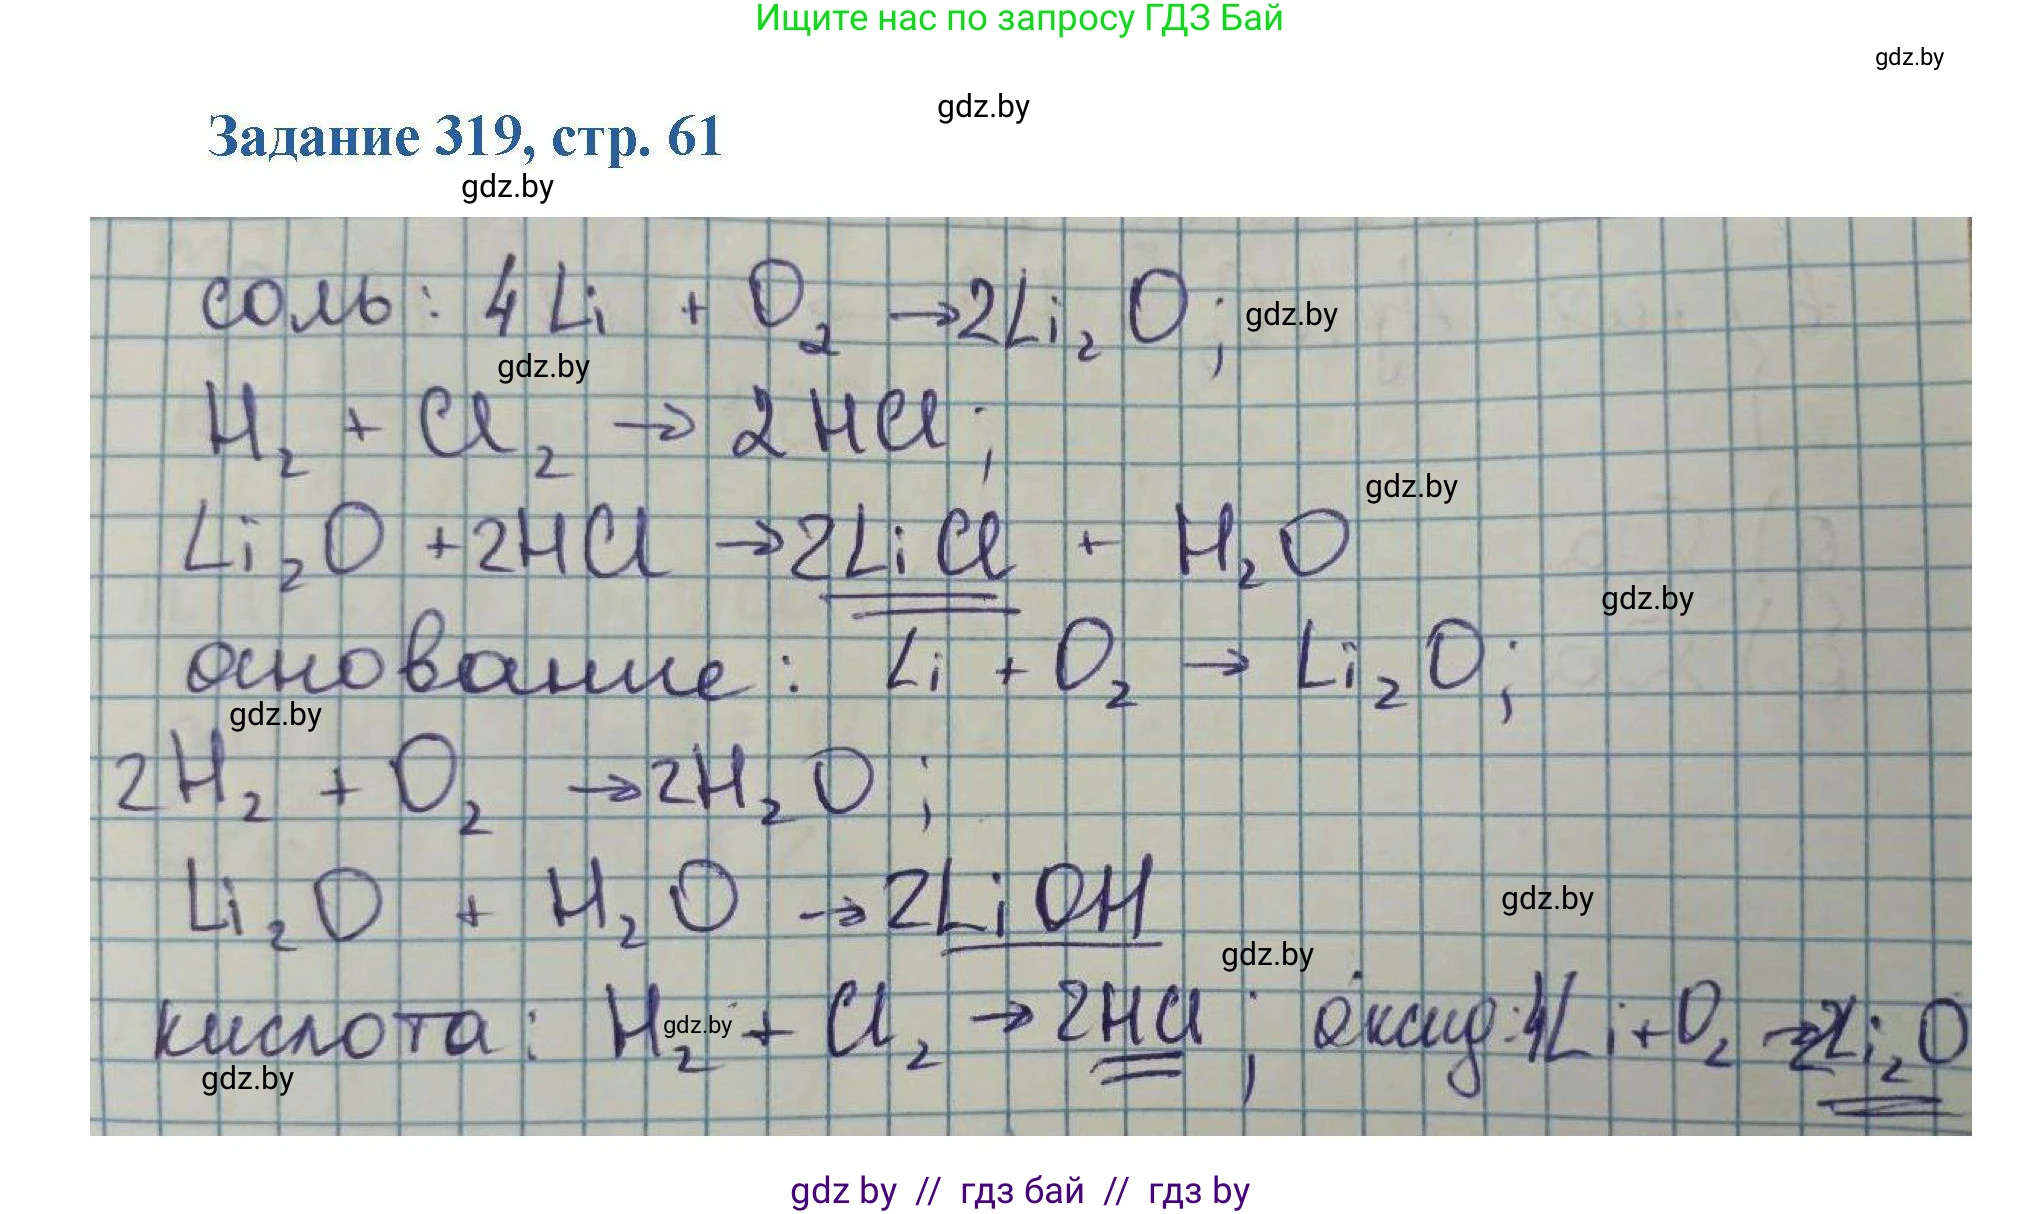 Ищите нас по запросу ГДЗ Бай
gdz.by
gdz.by
Задание 319, стр. 61
gdz.by
соль: 4Li + O₂ → 2Li₂O; gdz.by
gdz.by
H₂ + Cl₂ → 2HCl;
gdz.by
Li₂O + 2HCl → 2LiCl + H₂O
gdz.by
основание: Li + O₂ → Li₂O;
gdz.by
2H₂ + O₂ → 2H₂O;
Li₂O + H₂O → 2LiOH
gdz.by
gdz.by
кислота: H₂ + Cl₂ → 2HCl; оксид: 4Li + O₂ → 2Li₂O
gdz.by
gdz.by
gdz by // гдз бай // гдз by